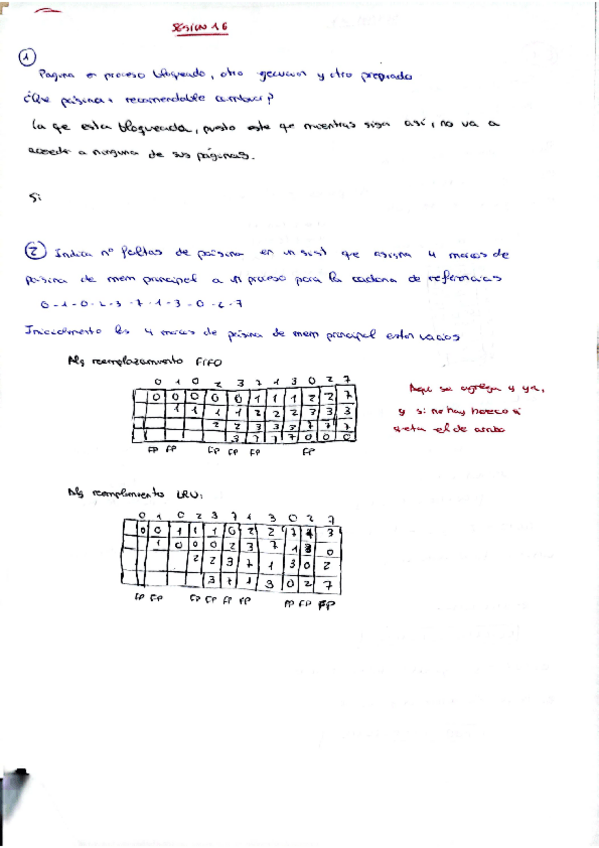 SESION 16
1
Pagina en proceso bloqueado, otro ejecucion y otro preparado
¿Que página + recomendable cambiar?
La que esta bloqueada, puesto este que mientras siga así, no va a
acceder a ninguna de sus páginas.
Si
2 Indica nº faltas de página en un sist que asigna 4 marcos de
página de mem principal a un proceso para la cadena de referencias
0-1-0-2-3-7-1-3-0-2-7
Inicialmente los 4 marcos de página de mem principal estan vacios
Alg reemplazamiento FIFO
0 1 0 2 3 7 1 3 0 2 7
0 0 0 0 0 1 1 1 2 2 7
1 1 1 1 2 2 2 3 3 3
2 2 3 3 3 7 7 7
3 7 7 7 0 0 0
FP FP FP FP FP FP
Aqui se agrega y ya,
y si no hay hueco si
quita el de arriba
LRU:
0 1 0 2 3 7 1 3 0 2 7
0 0 1 1 1 0 2 2 7 3
1 0 0 0 2 3 7 1 0
2 2 3 7 1 3 0 2
3 7 1 3 0 2 7
FP FP FP FP FP FP FP FP FP